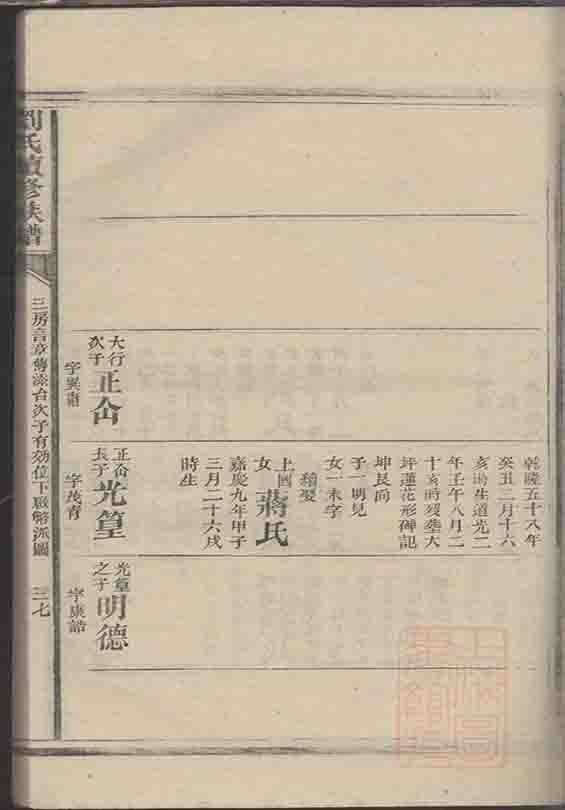 乾隆五十八年
癸丑二月十六
亥時生道光二
年壬午八月二
十亥時歿塋大
坪蓮花形碑記
坤艮向
子一明見
女一未字
續娶
上國女蔣氏
嘉慶九年甲子
三月二十六戌
時生
大行次子正
字巽
正長子光篁
字茂育
光篁之子明德
字東誥
劉氏續修族譜
三房言章傳添台次子有効位下啟派圖
三七